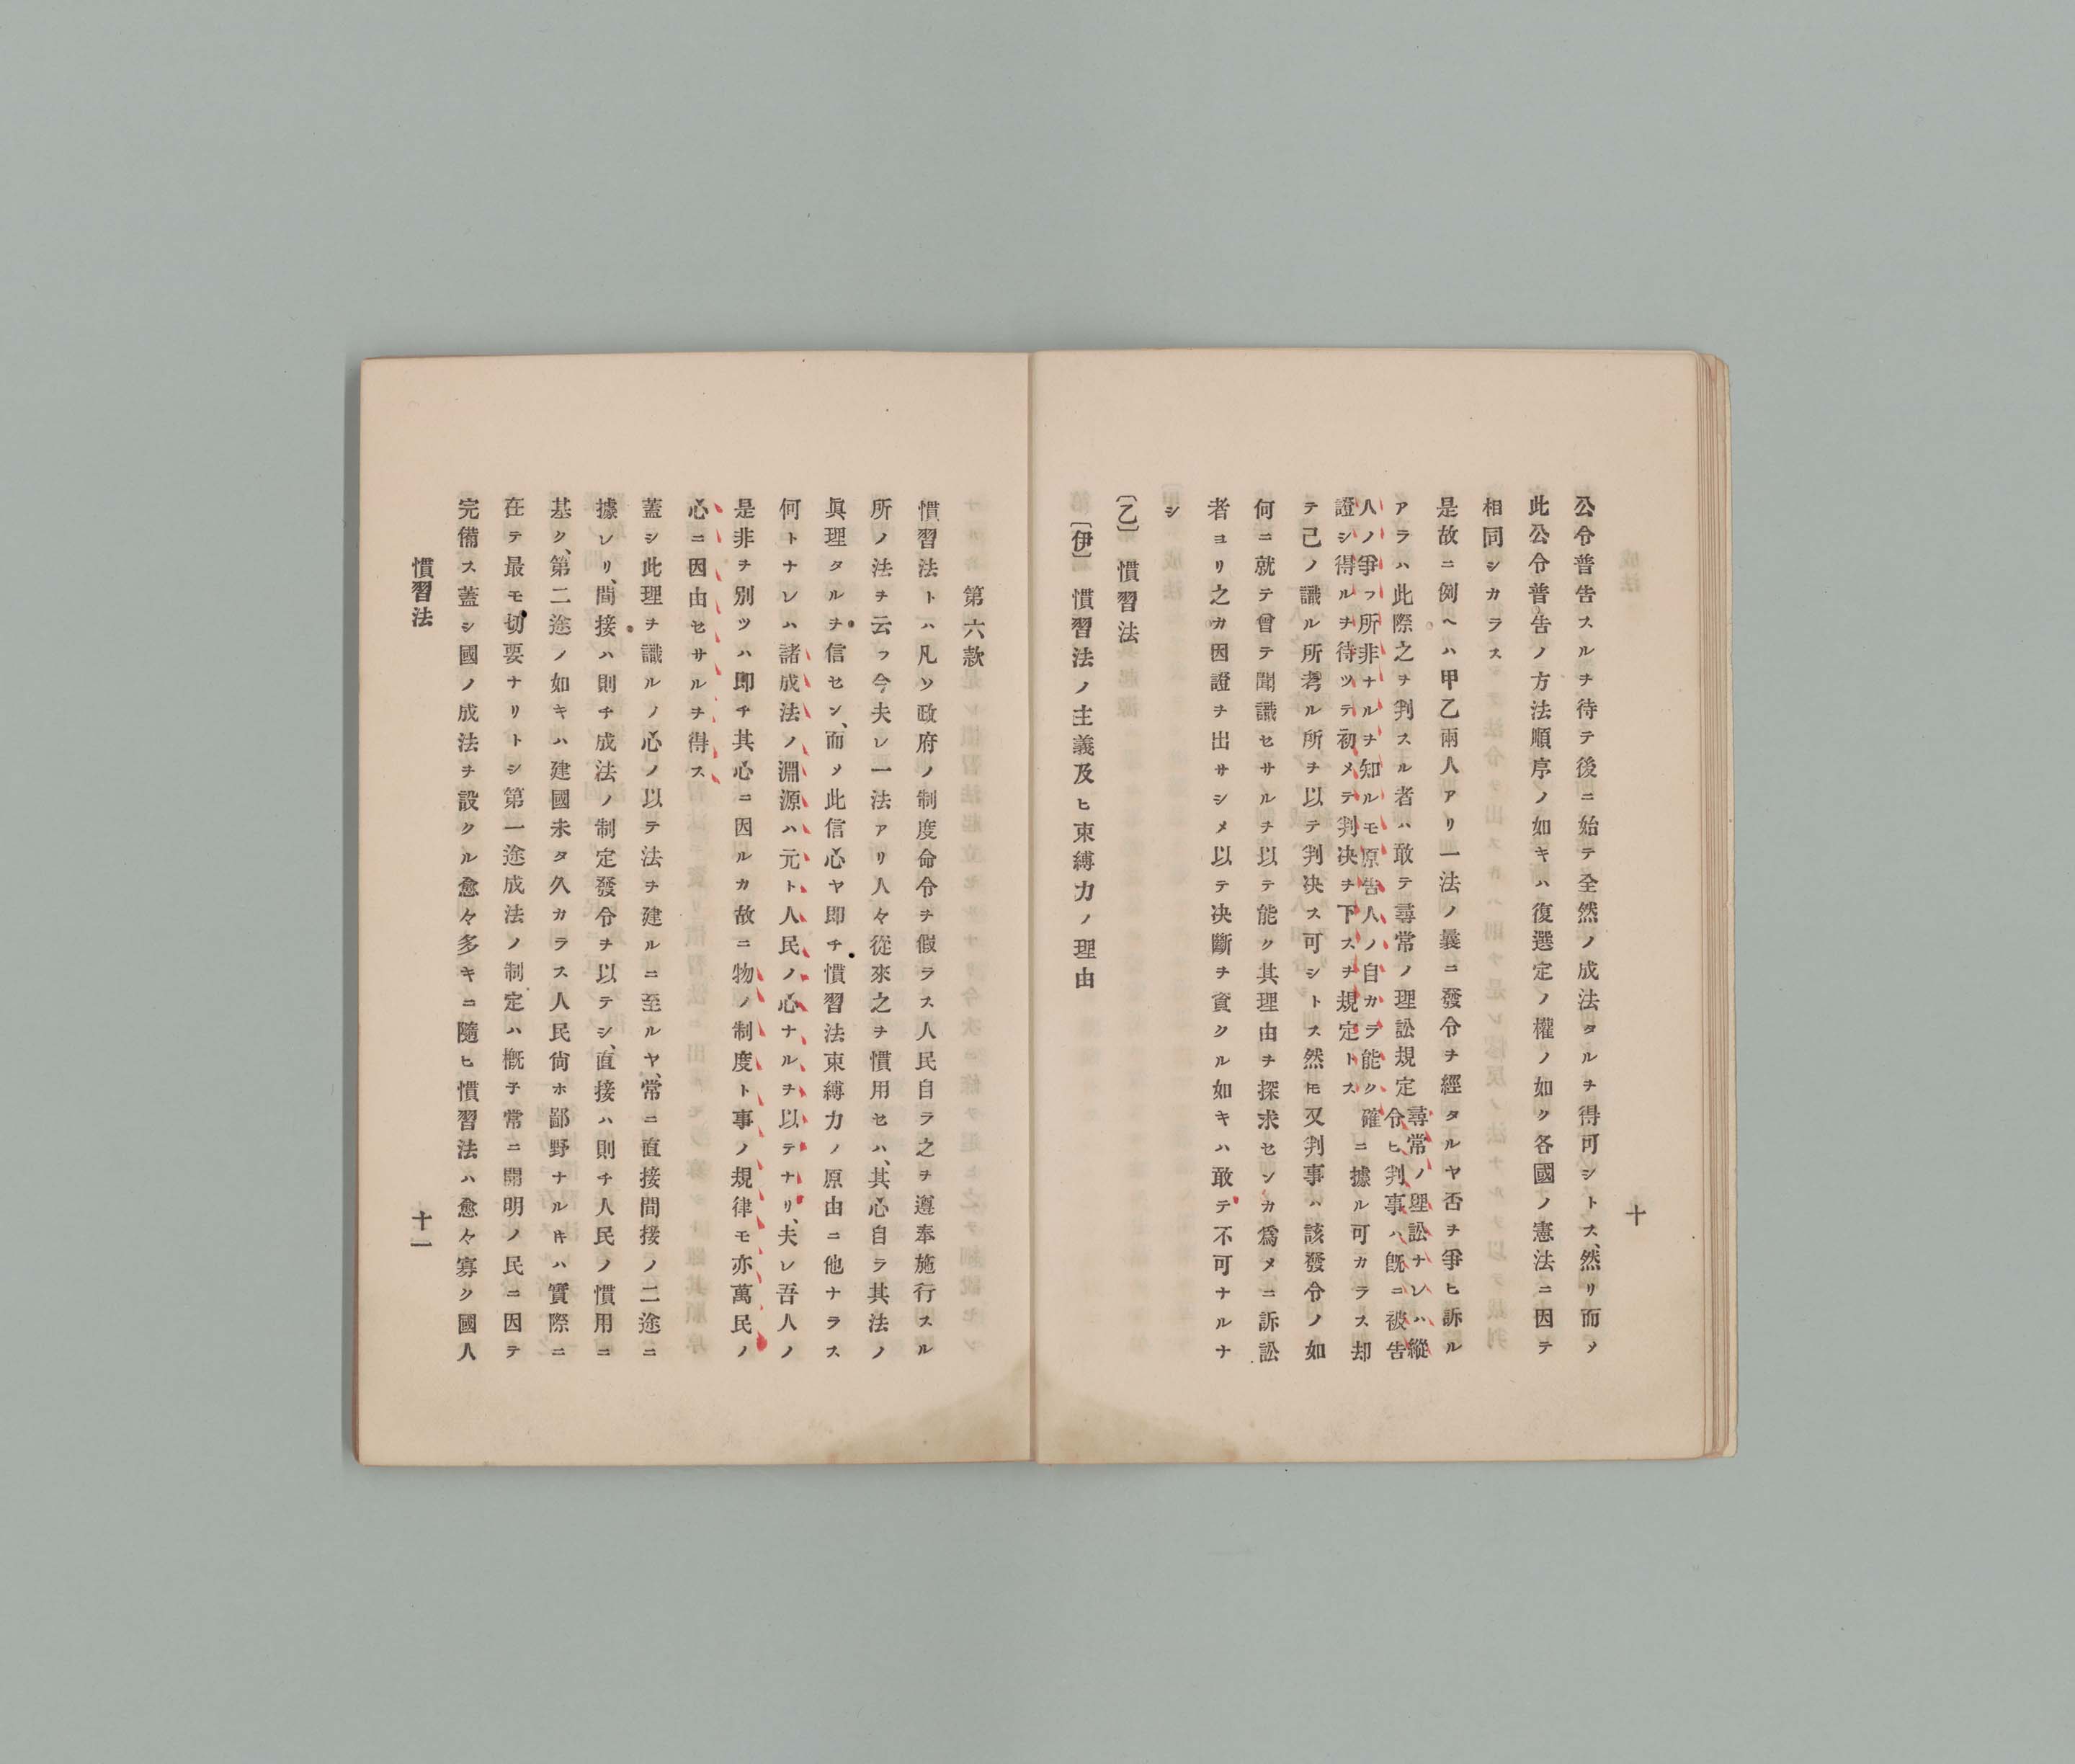 十
公令普告スルヲ待テ後ニ始テ全然ノ成法タルヲ得可シトス、然リ而〆
此公令普告ノ方法順序ノ如キハ復選定ノ權ノ如ク各國ノ憲法ニ因テ
相同シカラス
是故ニ例ヘハ甲乙兩人アリ一法ノ曩ニ發令ヲ經タルヤ否ヲ爭ヒ訴ル
アラハ此際之ヲ判スル者ハ敢テ尋常ノ理訟規定
尋常ノ理訟ナレハ縱
令ヒ判事ハ既ニ被告
人ノ爭フ所非ナルヲ知ルモ原告人ノ自カラ能ク確
證シ得ルヲ待ツテ初メテ判决ヲ下スヲ規定トス
ニ據ル可カラス却
テ己ノ識ル所考ル所ヲ以テ判决ス可シトス然𪜈又判事ハ該發令ノ如
何ニ就テ曾テ聞識セサルヲ以テ能ク其理由ヲ探求センカ爲メニ訴訟
者ヨリ之カ因證ヲ出サシメ以テ决斷ヲ資クル如キハ敢テ不可ナルナ
シ
〔乙〕慣習法
〔伊〕慣習法ノ主義及ヒ束縛力ノ理由
第六款
慣習法トハ凡ソ政府ノ制度命令ヲ假ラス人民自ラ之ヲ遵奉施行スル
所ノ法ヲ云フ今夫レ一法アリ人々從來之ヲ慣用セハ、其心自ラ其法ノ
眞理タルヲ信セン、而〆此信心ヤ即チ慣習法束縛力ノ原由ニ他ナラス
何トナレハ諸成法ノ淵源ハ元ト人民ノ心ナルヲ以テナリ、夫レ吾人ノ
是非ヲ別ツハ即チ其心ニ因ルカ故ニ物ノ制度ト事ノ規律モ亦萬民ノ
心ニ因由セサルヲ得ス
蓋シ此理ヲ識ルノ心ノ以テ法ヲ建ルニ至ルヤ、常ニ直接間接ノ二途ニ
據レリ、間接ハ則チ成法ノ制定發令ヲ以テシ、直接ハ則チ人民ノ慣用ニ
基ク、第二途ノ如キハ建國未タ久カラス人民尙ホ鄙野ナル𪜈ハ實際ニ
在テ最モ切要ナリトシ第一途成法ノ制定ハ概子常ニ開明ノ民ニ因テ
完備ス蓋シ國ノ成法ヲ設クル愈々多キニ隨ヒ慣習法ハ愈々寡ク國人
慣習法
十一